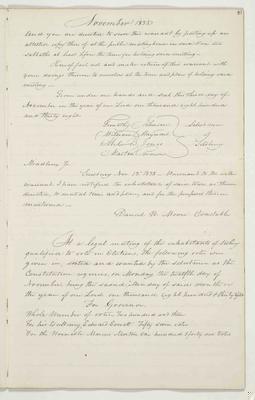 November 1838
And you are directed to serve this warrant by posting up an
attested copy thereof at the public meeting house in said town six
sabbaths at least before the time for holding said meeting.
Hereof fail not and make return of this warrant with
your doings thereon to ourselves at the time and place of holding said
meeting.
Given under our hands and seal this third day of
November in the year of our Lord one thousand eight hundred
and thirty eight
Timothy
William Maynard
Selectmen
of
Sudbury
Sudbury Nov 12 1838 Pursuant to the within
warrant I have notified the inhabitants of said town as therein
directed, to meet at time and place, and for the purposes therein
mentioned
Moore Constable
At a legal meeting of the inhabitants of Sudbury
qualified to vote in Elections, the following votes were
given in, sorted and counted by the selectmen as the
Constitution requires, on Monday the twelfth day of
November being the second Monday of said month in
the year of our Lord one thousand eight hundred & thirty eight
For Governor
Whole Number of votes Two hundred and three
For his Excellency Edward Everett Fifty seven votes
For the Honorable Marcus Morton one hundred & forty six votes